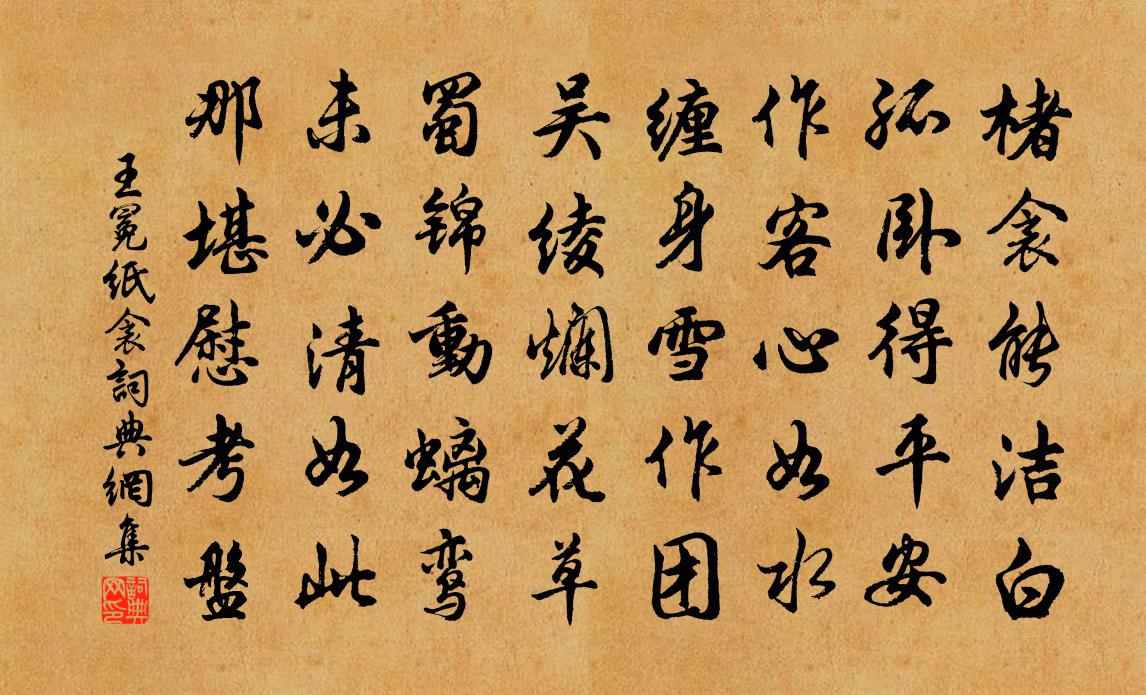 楮衾能洁白
孤卧得平安
作客心如水
缠身雪作团
吴绫斓花草
蜀锦動螭鸾
未必清如此
那堪慰考盤
王冕纸衾詞典網集
詞典网印